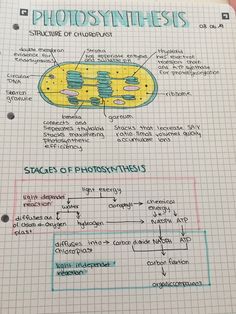 PHOTOSYNTHESIS
STRUCTURE OF CHLOROPLAST
double membrane
evidence for
endosymbiosis
Stroma
has
enzymes
and suitable pH
thylakoid
has
transport chain
and ATP synthase
for photophosphorylation
circular
DNA
starch
granule
ribosome
lamella
connects and
separates thylakoid
stacks maximizing
photosynthetic
efficiency
granum
Stacks that increase SA/V
ratio small volumes quickly
accumulate ions
STAGES OF PHOTOSYNTHESIS
light dependent
reaction
light energy
water
chemical
energy
diffuses out
hydrogen
NADPH ATP
diffuses into
chloroplast
carbon dioxide
NADPH ATP
light independent
reaction
carbon fixation
organic compounds